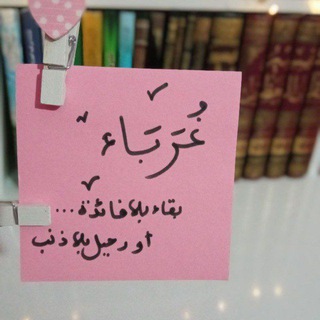 غُرَبَاء
بقاء بلا فائدة...
أو رحيل بلا ذنب